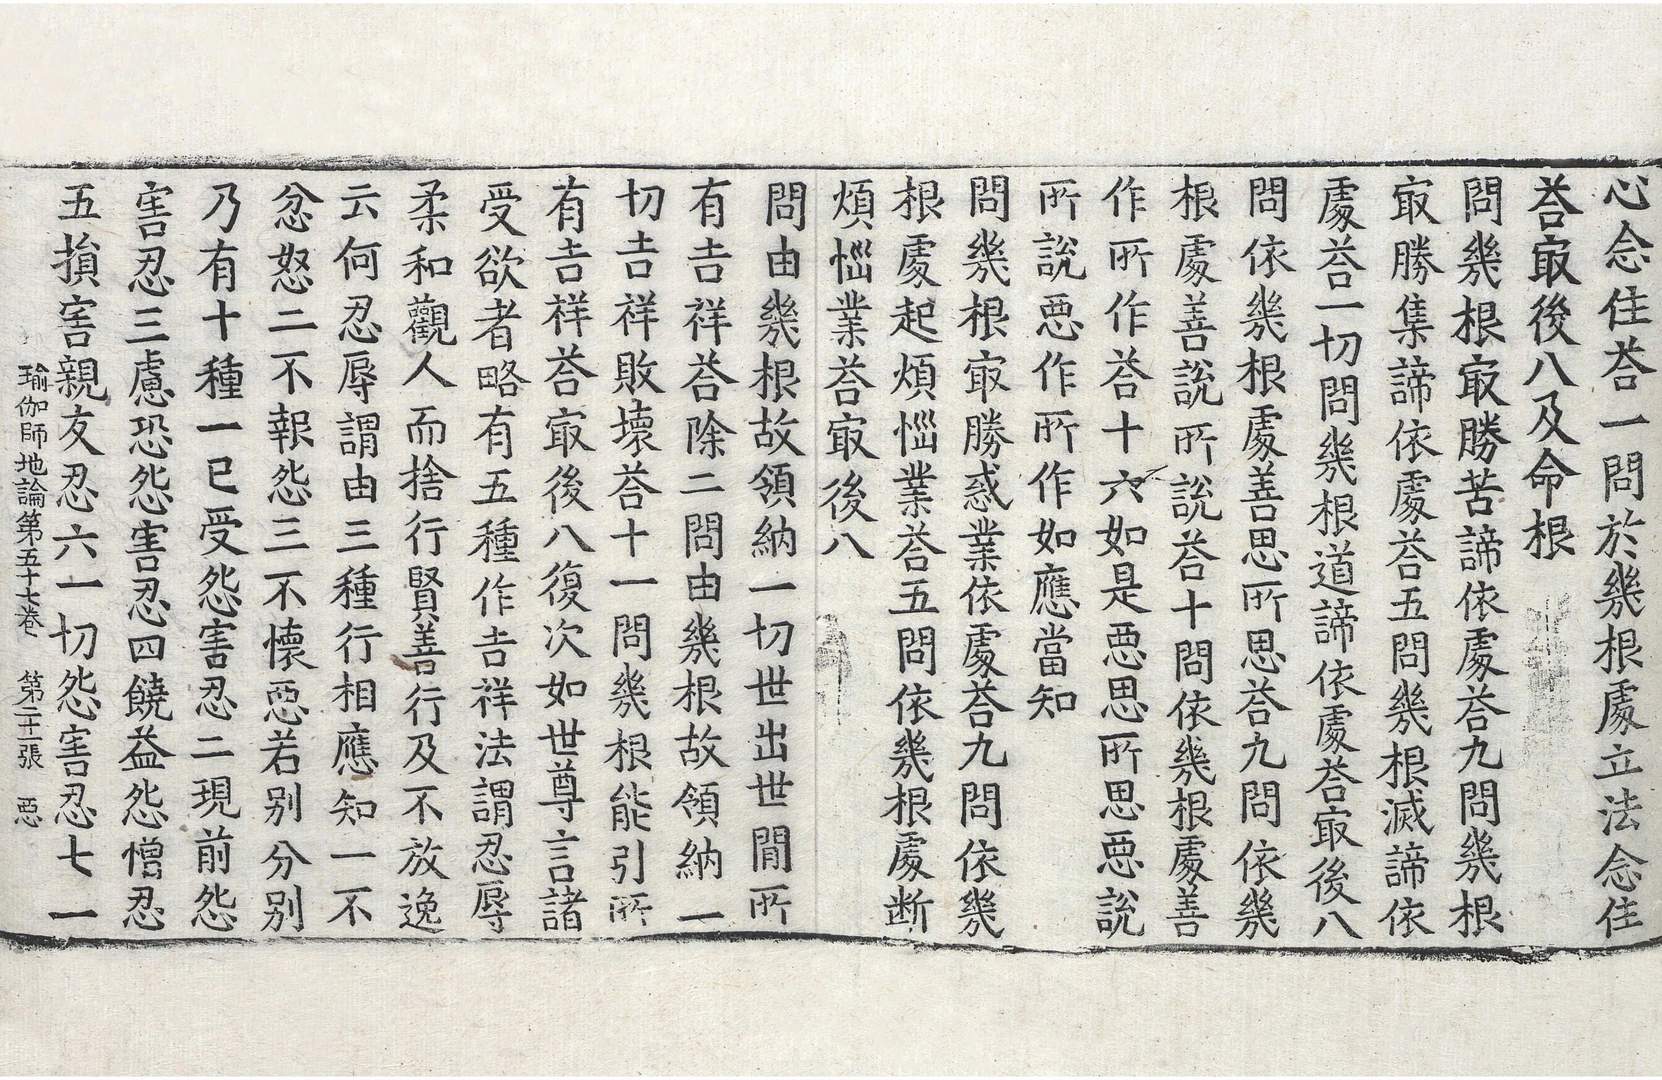 心念住荅一問於幾根處立法念住
荅㝡後八及命根
問幾根㝡勝苦諦依處荅九問幾根
㝡勝集諦依處荅五問幾根滅諦依
處荅一切問幾根道諦依處荅㝡後八
問依幾根處善思所思荅九問依幾
根處善說所說荅十問依幾根處善
作所作荅十六如是惡思所思惡說
所說惡作所作如應當知
問幾根㝡勝惑業依處荅九問依幾
根處起煩惱業荅五問依幾根處断
煩惱業荅㝡後八
問由幾根故領納一切世出世間所
有吉祥荅除二問由幾根故領納一
切吉祥敗壞荅十一問幾根能引所
有吉祥荅㝡後八復次如世尊言諸
受欲者略有五種作吉祥法謂忍辱
柔和觀人而捨行賢善行及不放逸
云何忍辱謂由三種行相應知一不
忿怒二不報怨三不懷惡若別分別
乃有十種一已受怨害忍二現前怨
害忍三慮恐怨害忍四饒益怨憎忍
五損害親友忍六一切怨害忍七一
瑜伽師地論第五十七卷 第二十二張 惡